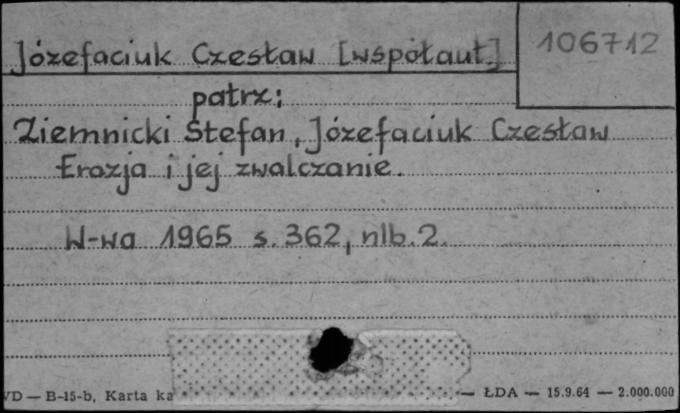 Józefaciuk Czesław [współaut.] 106712
patrz:
Ziemnicki Stefan, Józefaciuk Czesław
Erozja i jej zwalczanie.
W-wa 1965 s. 362, nlb. 2.
VD — B-15-b, Karta ka — ŁDA — 15.9.64 — 2.000.000